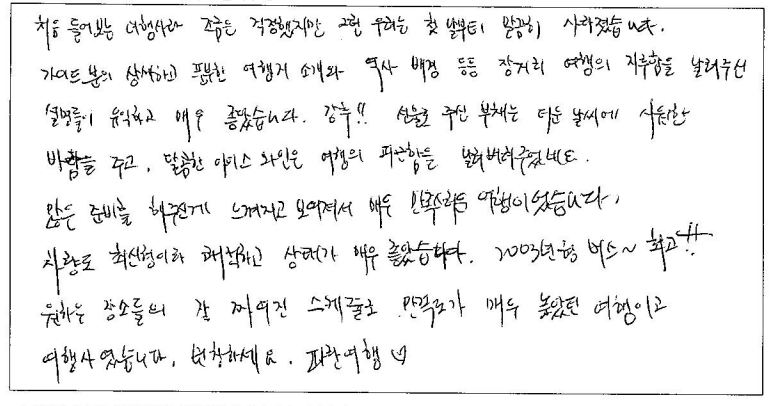 처음 들어보는 여행사라 조금은 걱정했지만 그런 우려는 첫 날부터 말끔히 사라졌습니다.
가이드분의 상세하고 풍부한 여행지 소개와 역사 배경 등등 장거리 여행의 지루함을 날려주신
설명들이 유익하고 매우 좋았습니다. 강추!! 선물로 주신 부채는 더운 날씨에 시원한
바람을 주고, 달콤한 아이스 와인은 여행의 피곤함을 날려버려주었네요.
많은 준비를 해주신게 느껴지고 보여져서 매우 만족스러운 여행이었습니다.
차량도 최신형이라 쾌적하고 상태가 매우 좋았습니다. 2003년형 버스~ 최고!!
원하는 장소들의 잘 짜여진 스케줄로 만족도가 매우 높았던 여행이고
여행사였습니다. 번창하세요. 파란여행 ♡